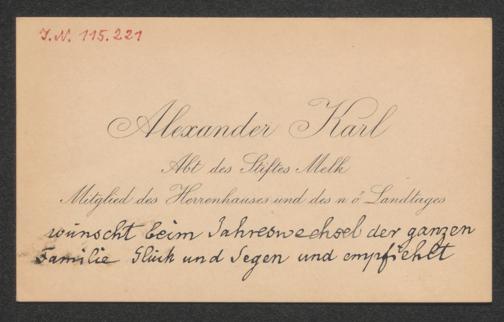 I.N. 115.221
Alexander Karl
Abt des Stiftes Melk
Mitglied des Herrenhauses und des n ö Landtages
wünscht beim Jahreswechsel der ganzen
Familie Glück und Segen und empfiehlt